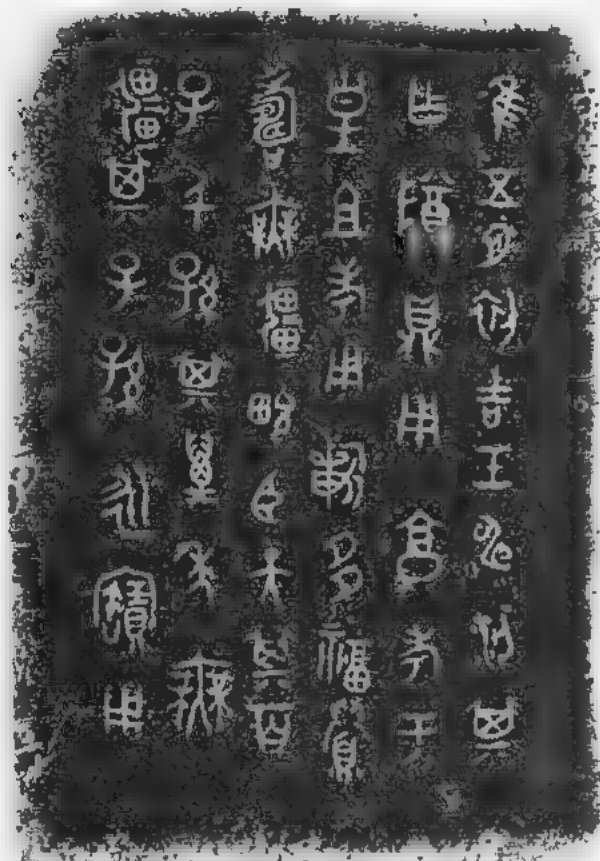 隹五月初吉壬申梁其
乍尊鼎用亯考于
皇且考用𣄨多福眉
壽無疆畯臣天其百
子千孫其萬年無
疆其子子孫孫永寶用